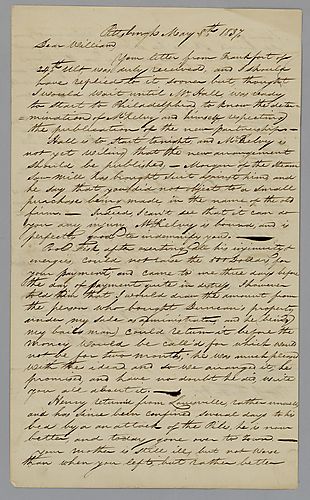 Pittsburgh May 8th 1837
Dear William
Your letter from Frankfort of
24th Ult was duly received, and I should
have replied to it sooner but thought
I would wait until Mr Hall was ready
to start to Philadelphia to know the deter-
mination of McKelvy and himself respecting
the publication of the new partnership —
Hall is to start tonight, and McKelvy is
not yet willing that the new arrangement
should be published — Morgan the Steam
Saw Mill has brought Suit against him and
he say that you did not object to a small
purchase being made in the name of the old
firm — Indeed I can't see that it can do
you any injury McKelvy is bound and is
perfectly good to indemnify you —
after exerting all his ingenuity &
energies could not raise the 500 Dollars for
your payment, and came to me three days before
the day of payment quite in distress, I however
told him that I would draw the amount from
the person who bought property,
under my Sale as Administrator, and he being
my bail man could return it before the
money would be call'd for which would
not be for two months, he was much pleased
with the idea and so we arranged it, he
promised and have no doubt he did write
you all about it. —
Henry returned from Louisville rather unwell
and has since been confined several days to his
bed by an attack of the Pile, he is now
better and today gone over to town —
your mother is still ill, but not worse
than when you left, but rather better